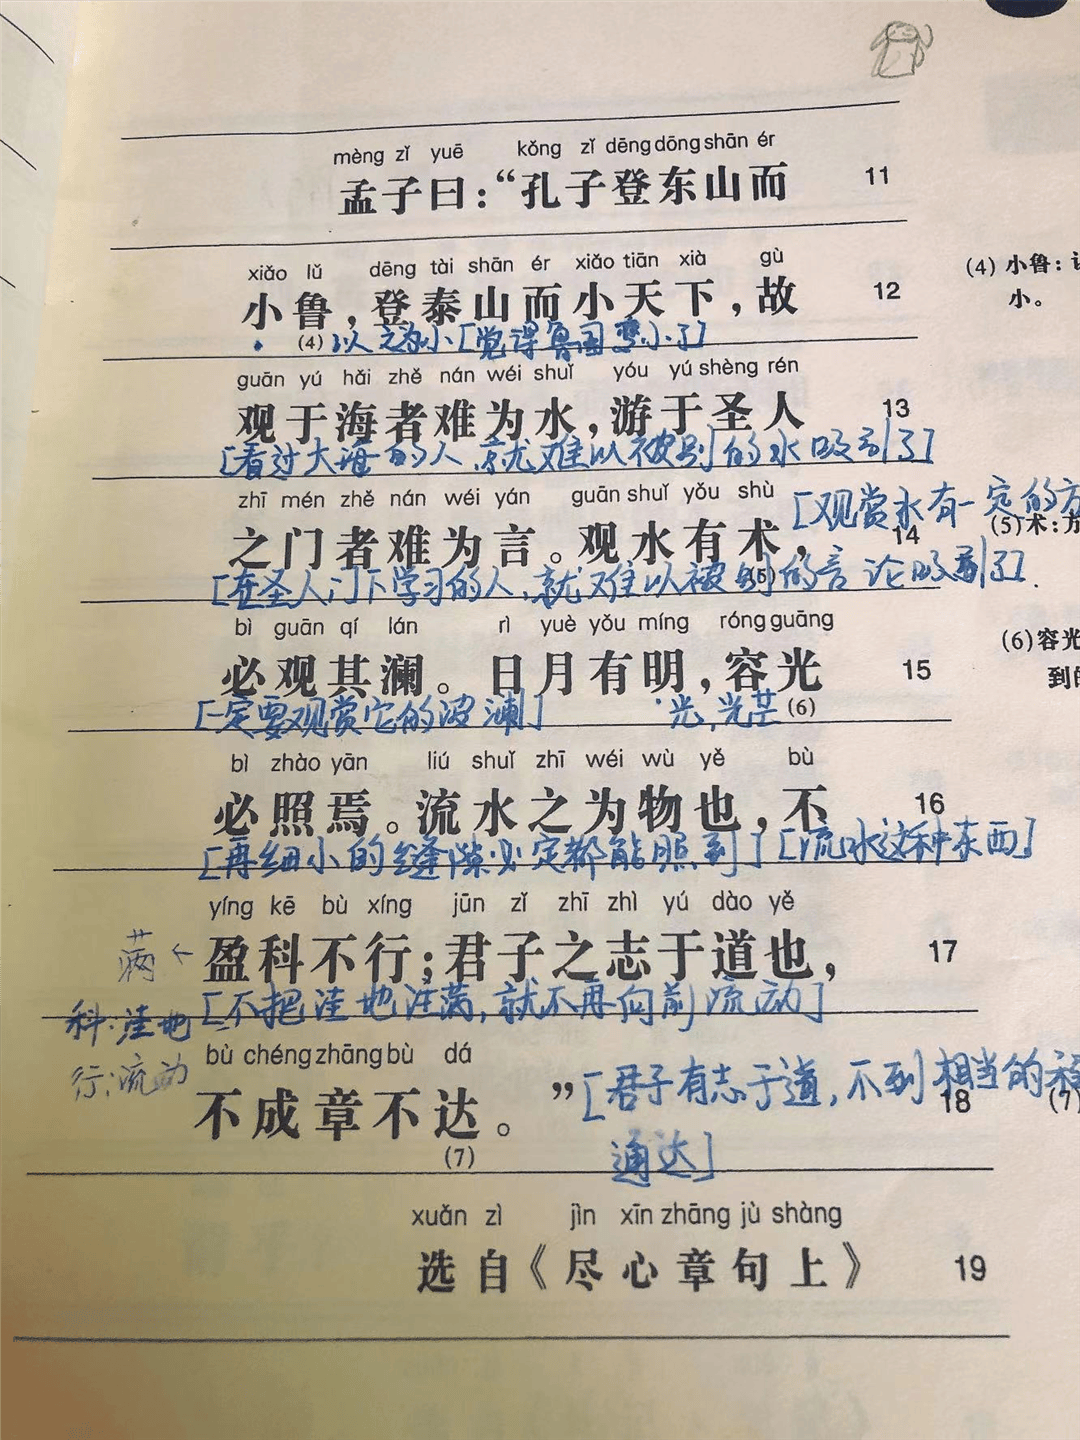 mèng zǐ yuē kǒng zǐ dēng dōng shān ér
孟子曰：“孔子登东山而 11
xiǎo lǔ dēng tài shān ér xiǎo tiān xià gù
小鲁，登泰山而小天下，故 12
(4) 小鲁：
小。
(4) 以之为小[觉得鲁国变小了]
guān yú hǎi zhě nán wéi shuǐ yóu yú shèng rén
观于海者难为水，游于圣人 13
[看过大海的人，就难以被别的水吸引了]
zhī mén zhě nán wéi yán guān shuǐ yǒu shù
[观赏水有一定的方
之门者难为言。观水有术， 14
(5)术：方
[在圣人门下学习的人，就难以被别的言论吸引了].
(5)
bì guān qí lán rì yuè yǒu míng róng guāng
必观其澜。日月有明，容光 15
(6)容光
到的
[一定要观赏它的波澜] 光，光芒 (6)
bì zhào yān liú shuǐ zhī wéi wù yě bù
必照焉。流水之为物也，不 16
[再细小的缝隙必定都能照到] [流水这种东西]
yíng kē bù xíng jūn zǐ zhī zhì yú dào yě
满← 盈科不行；君子之志于道也， 17
科：洼地 [不把洼地注满，就不再向前流动]
bù chéng zhāng bù dá
行：流动
不成章不达。” [君子有志于道，不到相当的程 18
(7) (7)
通达]
xuǎn zì jìn xīn zhāng jù shàng
选自《尽心章句上》 19